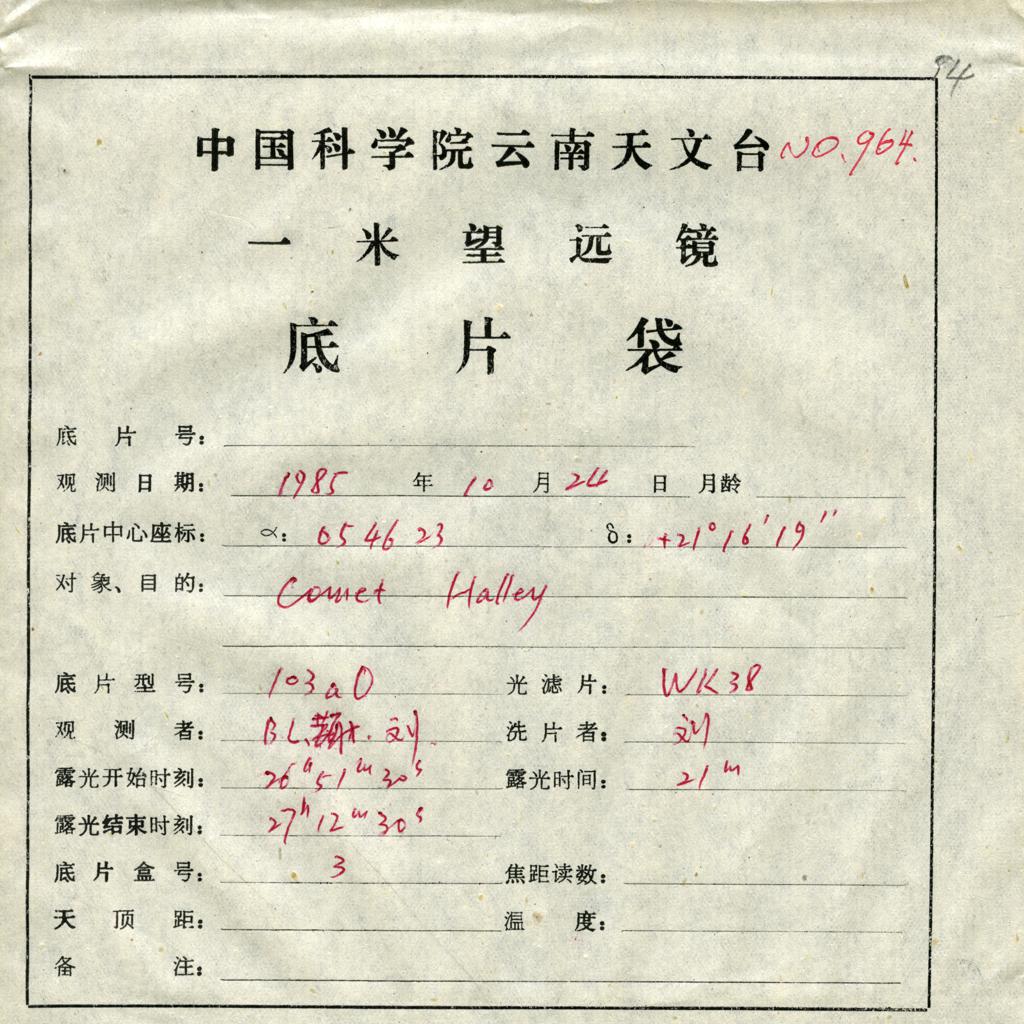 94
中国科学院云南天文台 NO.964.
一米望远镜
底片袋
底片号：
观测日期： 1985 年 10 月 24 日 月龄
底片中心座标： α： 05 46 23 δ： +21°16′19″
对象、目的： Comet Halley
底片型号： 103aO 光滤片： WK38
观测者： BL. 刘 洗片者： 刘
露光开始时刻： 26h51m30s 露光时间： 21m
露光结束时刻： 27h12m30s
底片盒号： 3 焦距读数：
天顶距： 温度：
备注：